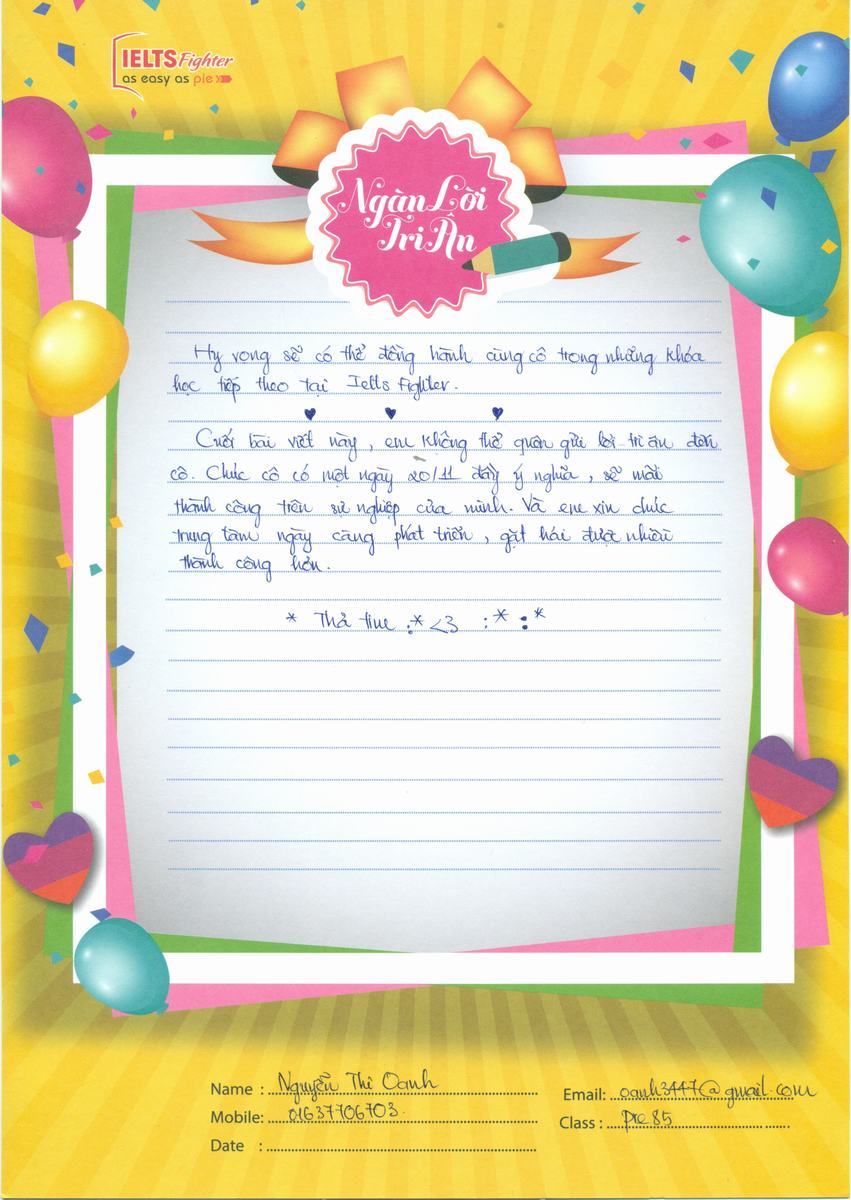 IELTS Fighter
as easy as pie
Ngàn Lời
Tri Ân
Hy vọng sẽ có thể đồng hành cùng cô trong những khóa
học tiếp theo tại Ielts Fighter.
Cuối bài viết này, em không thể quên gửi lời tri ân đến
cô. Chúc cô có một ngày 20/11 đầy ý nghĩa, sẽ mãi
thành công trên sự nghiệp của mình. Và em xin chúc
trung tâm ngày càng phát triển, gặt hái được nhiều
thành công hơn.
* Thả tim :* <3 :* :*
Name : Nguyễn Thị Oanh
Email: oanh3447@gmail.com
Mobile: 01637706703
Class : Pre 85
Date :